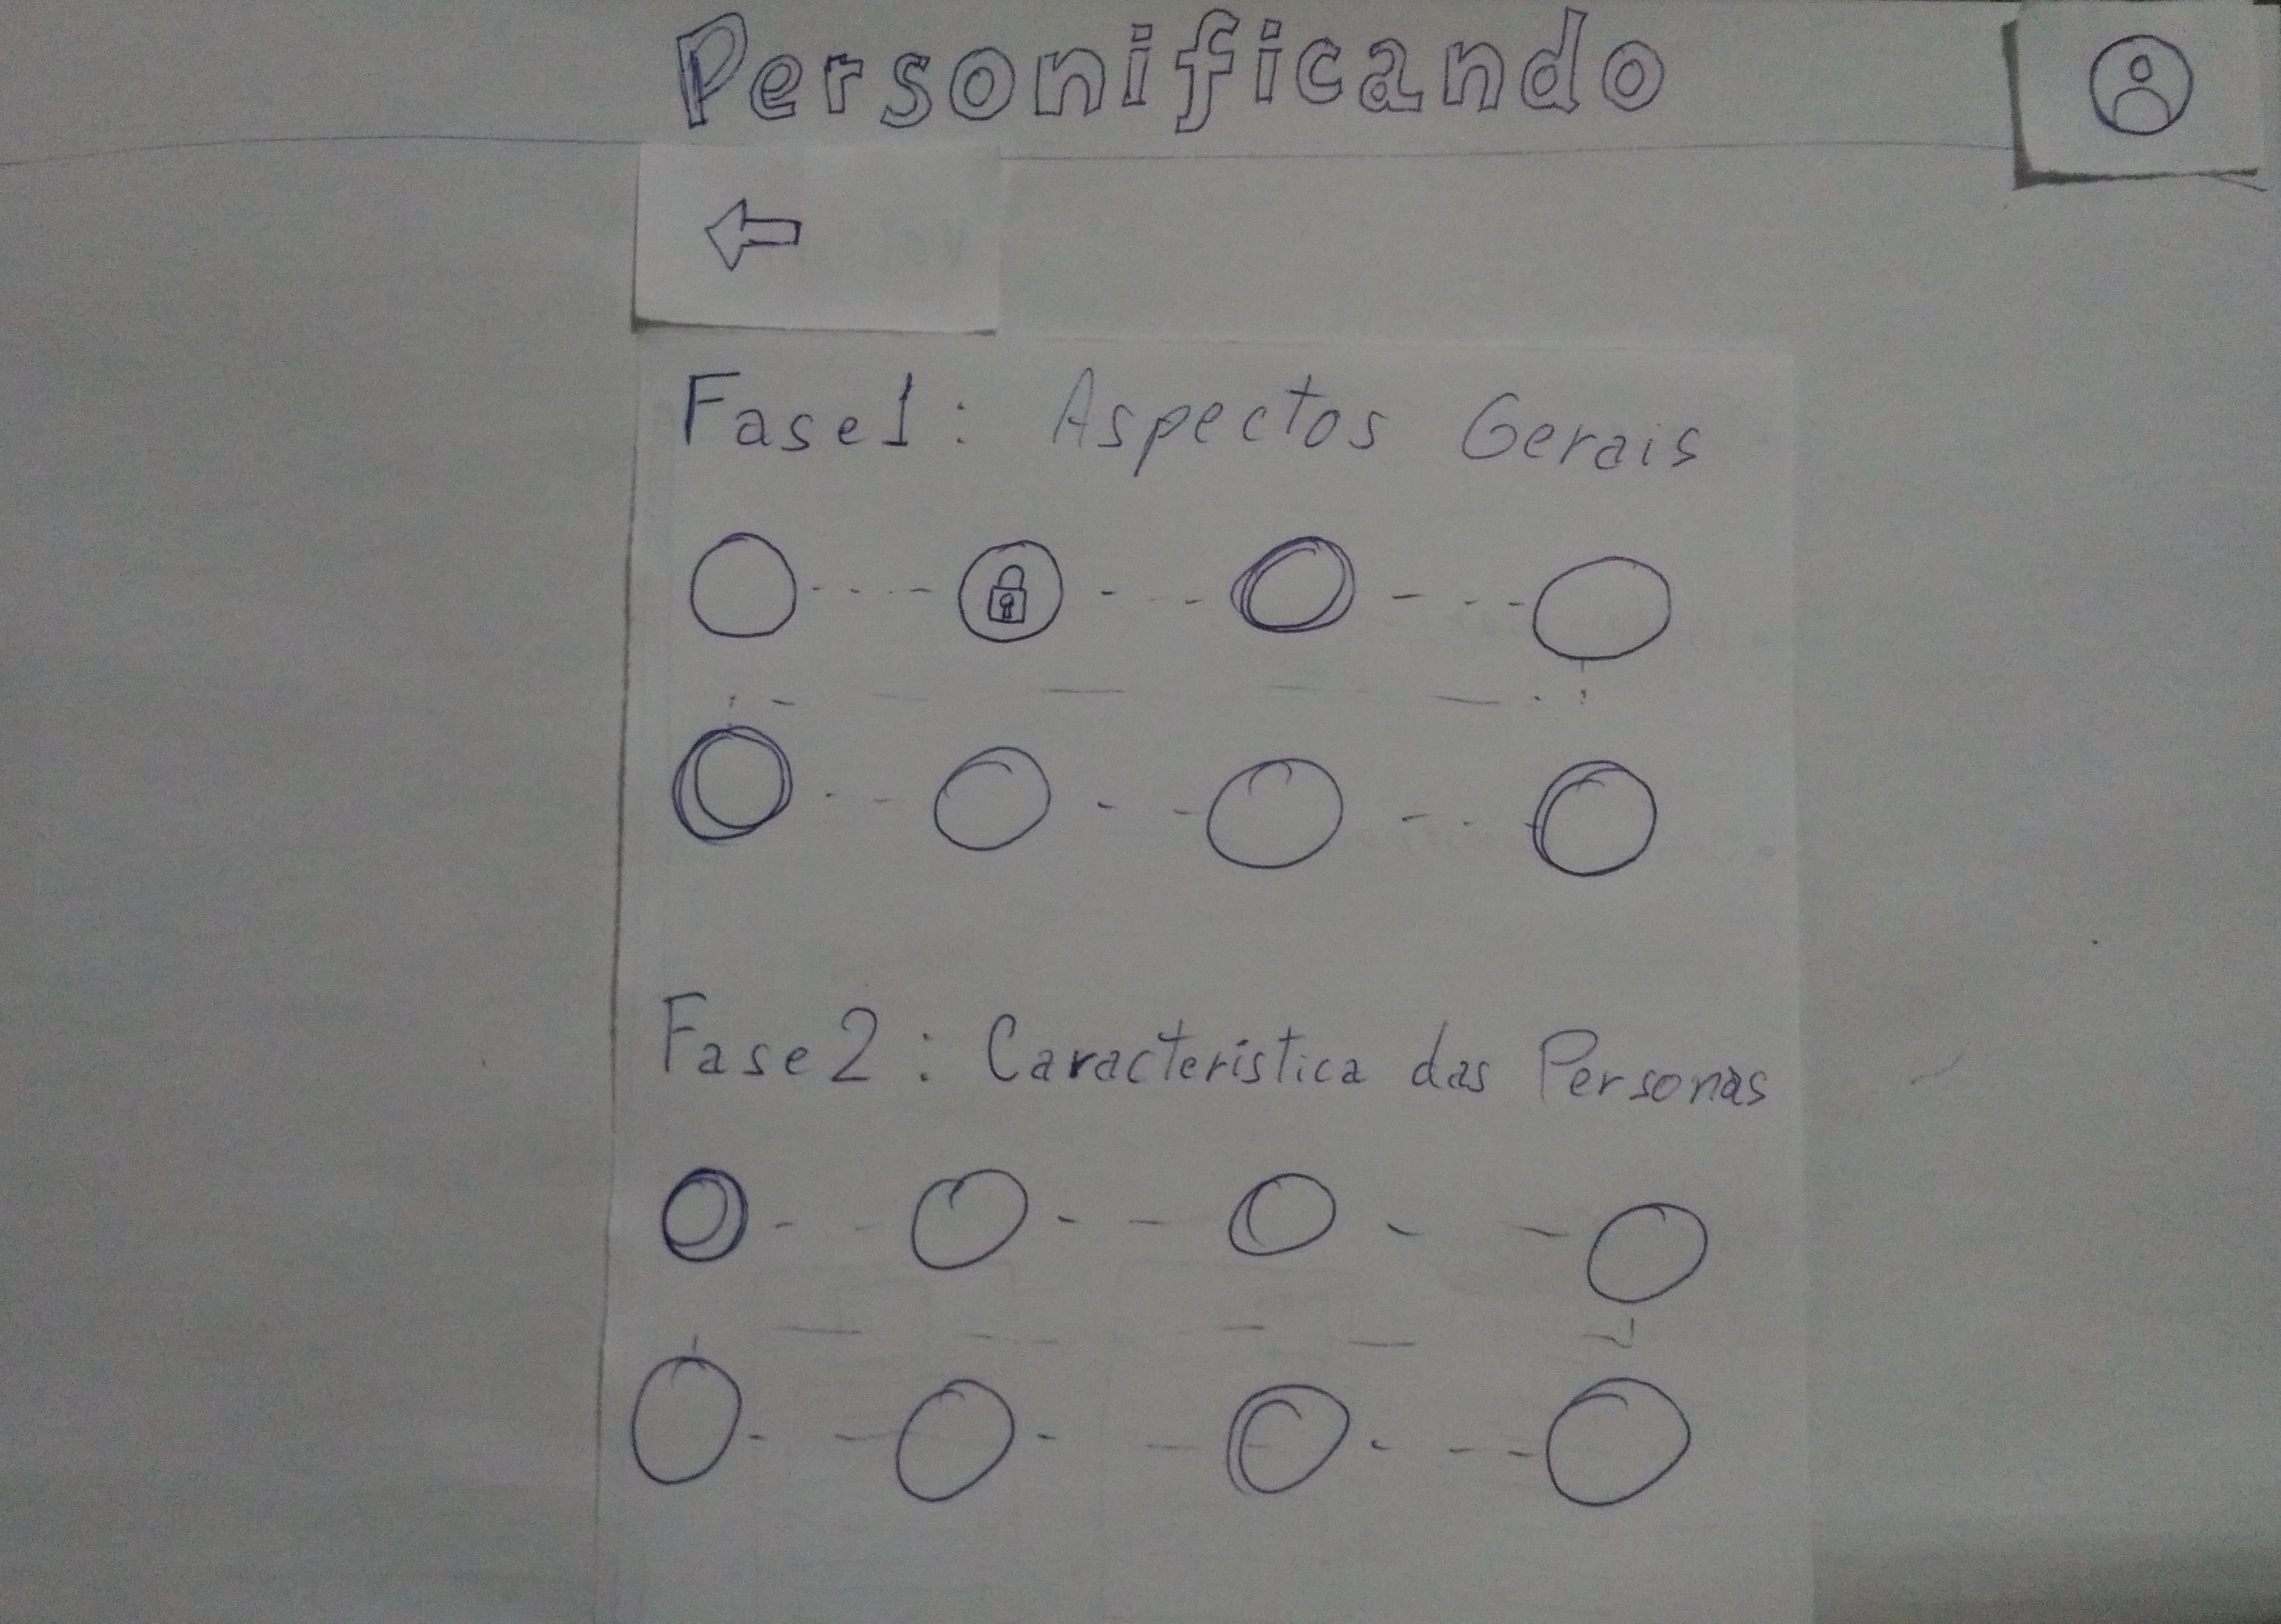 Personificando
Fase1: Aspectos Gerais
Fase2: Característica das Personas